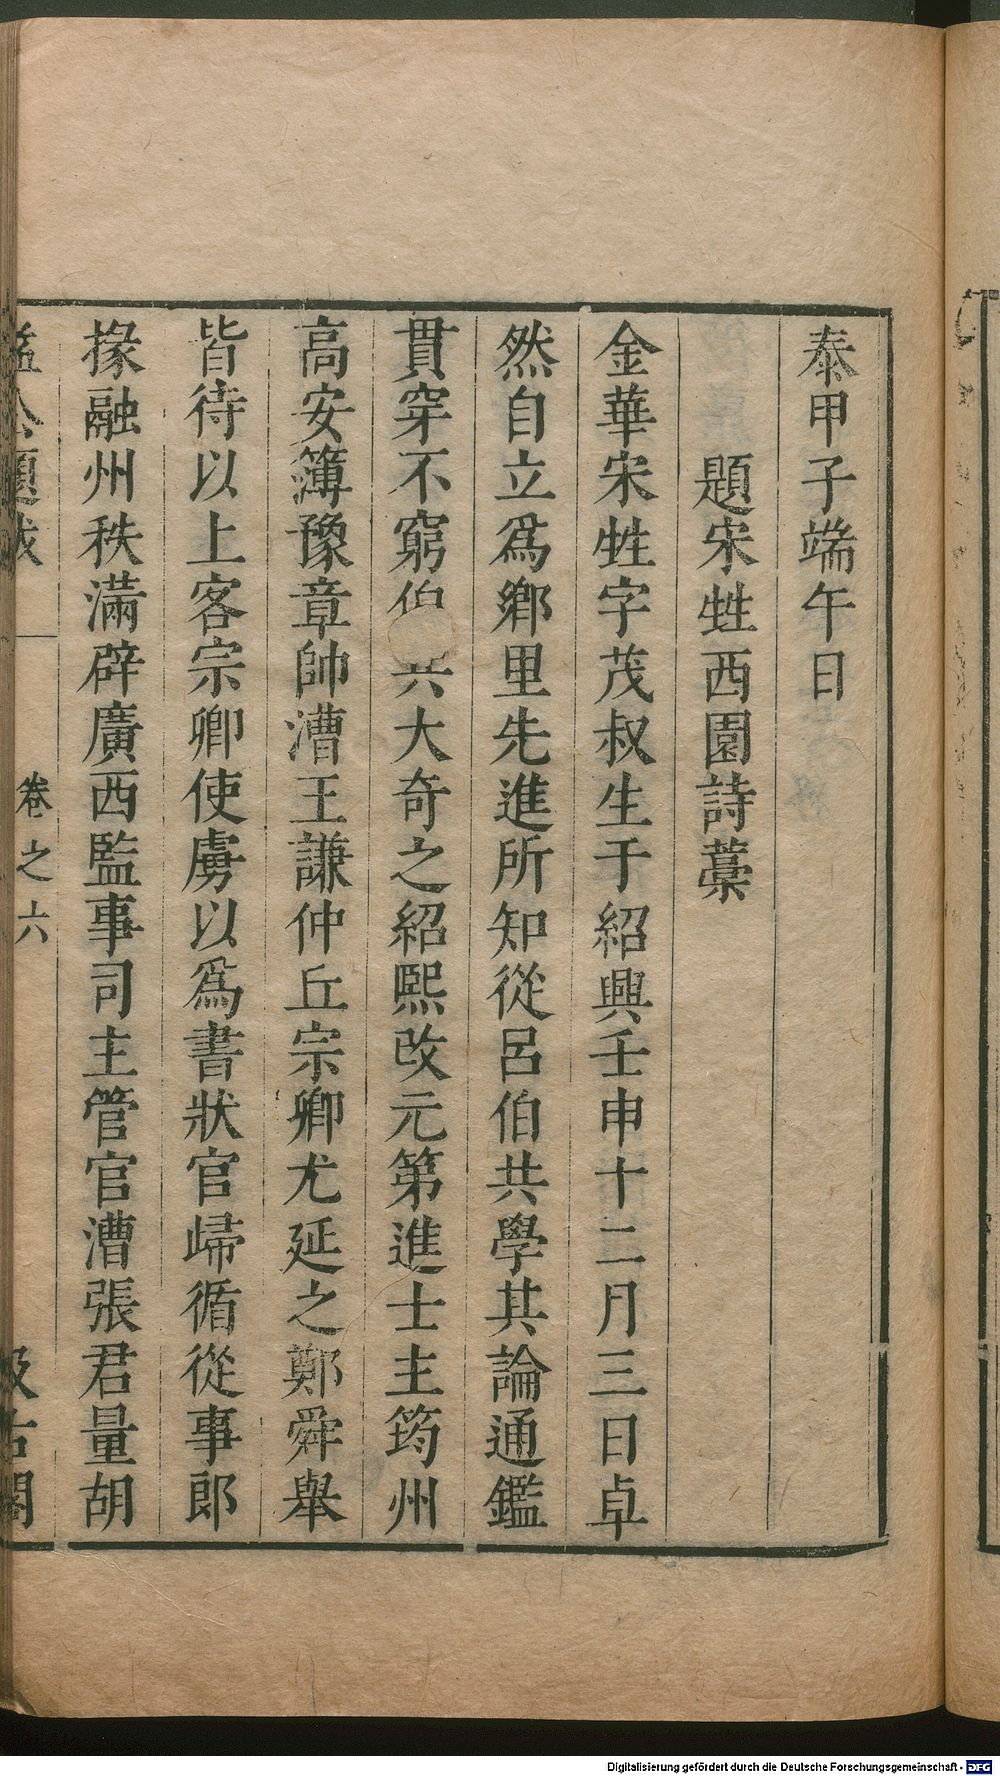 泰甲子端午日
題宋甡西園詩藁
金華宋甡字茂叔生于紹興壬申十二月三日卓
然自立爲鄉里先進所知從呂伯共學其論通鑑
貫穿不窮伯共大奇之紹熙改元第進士主筠州
高安簿豫章帥漕王謙仲丘宗卿尤延之鄭舜舉
皆待以上客宗卿使虜以爲書狀官歸循從事郎
掾融州秩滿辟廣西監事司主管官漕張君量胡
益公題跋 卷之六 汲古閣
Digitalisierung gefördert durch die Deutsche Forschungsgemeinschaft - DFG